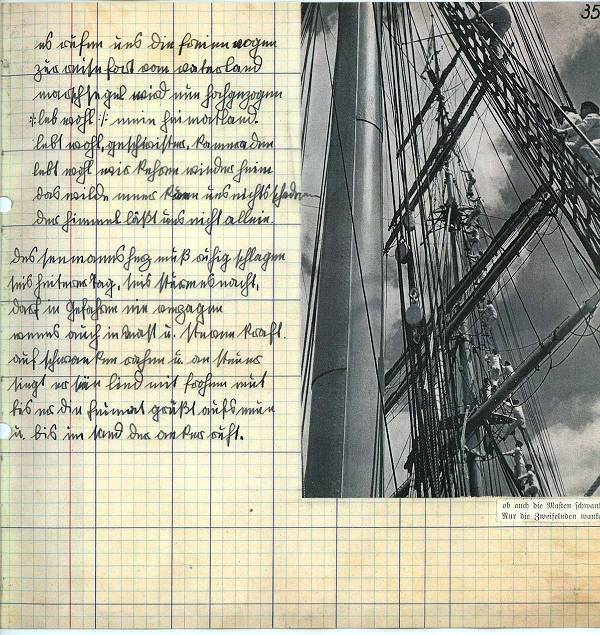 35
es rufen uns die freien wogen
zur reise fort vom vaterland
marschsegel wird nun hochgezogen
:/: leb wohl :/: mein heimatland.
lebt wohl, geschwister, kameraden
lebt wohl wir kehren wieder heim
das wilde meer kann uns nichts schaden
der himmel läßt uns nicht allein.
des seemanns herz muß ruhig schlagen
seis heiterer tag, seis stürmes nacht,
darf in Gefahren nie verzagen
wenns auch in mast u. steven kracht.
auf schwanken rahen u. am steuer
singt er sein lied mit frohem mut
bis er die heimat grüßt aufs neue
u. bis im sand der anker ruht.
ob auch die Masten schwank
Nur die Zweifelnden wanke